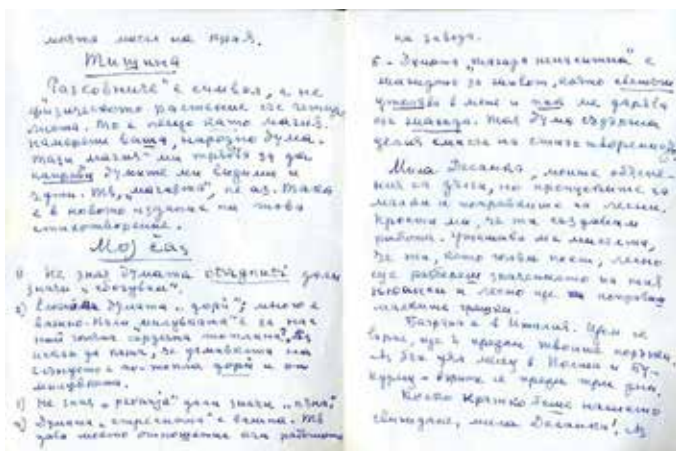 моята мисъл на края.
Тишина
"Разковниче" е символ, а не
физическото растение със четири
листа. То е нещо като магия.
Намерете ваша, народна дума.
Тази "магия" ми трябва за да
направя думите ми видими и
едни. Тя, "магията", не аз. Така
е в новото издание на това
стихотворение.
Мој čas
1) Не зная думата дали
значи "сбогувам".
2) думата "дори"; много е
важно. Като "милувката" е за нас
най голяма сърдечна топлина. Аз
исках да кажа, че усмивката на
слънцето е по-топла дори и от
милувката.
3) Не зная дали значи
4) Думата е важна. Тя
дава моето отношение към работата
на завода.
5 - Думата "жажда ненаситна" е
жаждата за живот, която
в мене и пак ме дарява
със жажда. Тая дума съдържа
целия смисъл на стихотворението
Мила Десанка, моите обясне-
ния са дълги, но преценките са
малки и поправките са лесни.
Крости ми, че ти създавам
работа. Утешава ме мисълта,
че ти, като голям поет, лесно
ще разбереш значението на тия
нюанси и лесно ще поправиш
малките грешки.
Багряна е в Италия. Щом се
върне, ще ѝ предам твоите поръки.
Аз бях два месец в Хисаня и Бу-
и преди три дни.
Колко кратко беше нашето
свиждане, мила Десанка! Аз